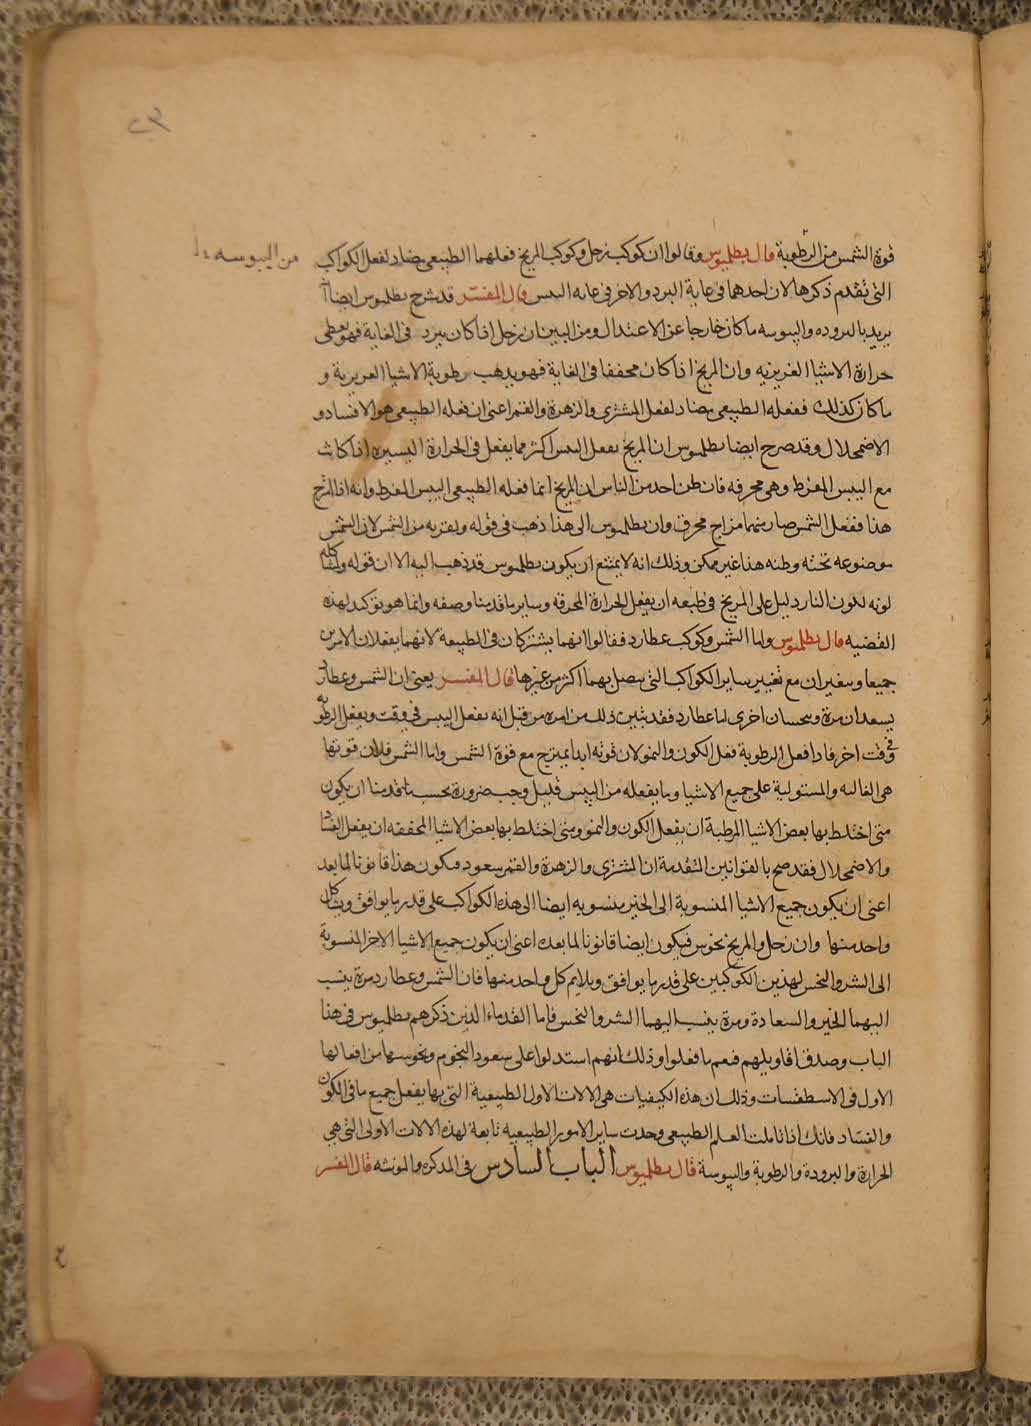 ٢٣
قوة الشمس من الرطوبة قال بطلميوس وقالوا ان كوكب زحل وكوكب المريخ فعلهما الطبيعى مضاد لفعل الكواكب
من اليبوسه
التى تقدم ذكرها لان احدهما فى غاية البرد والاخر فى غايه اليبس قال المفسر قد شرح بطلميوس ايضا
يريد بالبروده واليبوسه ما كان خارجا عن الاعتدال ومن البين ان زحل اذا كان يبرد فى الغاية فهو يطفى
حرارة الاشيا الغريزيه وان المريخ اذا كان مجففا فى الغاية فهو يذهب رطوبة الاشيا الغريزية و
ما كان كذلك ففعله الطبيعى مضاد لفعل المشترى والزهرة والقمر اعنى ان فعله الطبيعى هو الافساد و
الاضمحلال وقد صرح ايضا بطلميوس ان المريخ يفعل اليبس اكثر مما يفعل فى الحرارة اليسيرة اذا كانت
مع اليبس المفرط وهى محرقه فان ظن احد من الناس ان المريخ انما فعله الطبيعى اليبس المفرط وانه اذا امتزج
هذا ففعل الشمس صار منهما مزاج محرق وان بطلميوس الى هذا ذهب فى قوله ولقربه من الشمس لان الشمس
موضوعه تحته وظنه هذا غير ممكن وذلك انه لا يمتنع ان يكون بطلميوس قد ذهب اليه الا ان قوله ولمشاكله
لونه للون النار دليل على المريخ فى طبعه ان يفعل الحرارة المحرقه وساير ما قدمنا وصفه وانما هو توكيد لهذه
القضيه قال بطلميوس واما الشمس وكوكب عطارد فقالوا انهما يشتركان فى الطبيعة لانهما يفعلان الامرين
جميعا ويتغيران مع تغيير ساير الكواكب التى يتصل بهما اكثر من غيرها قال المفسر يعنى ان الشمس وعطارد
يسعدان مرة وينحسان اخرى اما عطارد فقد تبين ذلك من امره من قبل انه يفعل اليبس فى وقت ويفعل الرطوبه
فى وقت اخر فاذا فعل الرطوبة فعل الكون والنمو لان قوته ابدا يمتزج مع قوة الشمس واما الشمس فلان قوتها
هى الغالبه والمستولية على جميع الاشيا وما يفعله من اليبس قليل وجب ضرورة بحسب ما قدمنا ان يكون
متى اختلط بها بعض الاشيا المرطبة ان يفعل الكون والنمو ومتى اختلط بها بعض الاشيا المجففه ان يفعل الفساد
والاضمحلال فقد صح بالقوانين المتقدمة ان المشترى والزهرة والقمر سعود فيكون هذا قانونا لما بعد
اعنى ان يكون جميع الاشيا المنسوبة الى الخير منسوبه ايضا الى هذه الكواكب على قدر ما يوافق ويشاكل
واحد منها وان زحل والمريخ نحوس فيكون ايضا قانونا لما بعده اعنى ان يكون جميع الاشيا الاخر المنسوبة
الى الشر والنحس لهذين الكوكبين على قدر ما يوافق ويلايم كل واحد منها فان الشمس وعطارد مرة ينسب
اليهما الخير والسعادة ومرة ينسب اليهما الشر والنحس فاما القدماء الذين ذكرهم بطلميوس فى هذا
الباب وصدق اقاويلهم فنعم ما فعلوا وذلك انهم استدلوا على سعود النجوم ونحوسها من افعالها
الاول فى الاسطقسات وذلك ان هذه الكيفيات هى الالات الاول الطبيعية التى بها يفعل جميع ما فى الكون
والفساد فانك اذا تاملت العلم الطبيعى وجدت ساير الامور الطبيعيه تابعة لهذه الالات الاولى التى هى
الحرارة والبرودة والرطوبة واليبوسة قال بطلميوس الباب السادس فى المذكره والمونثه قال المفسر